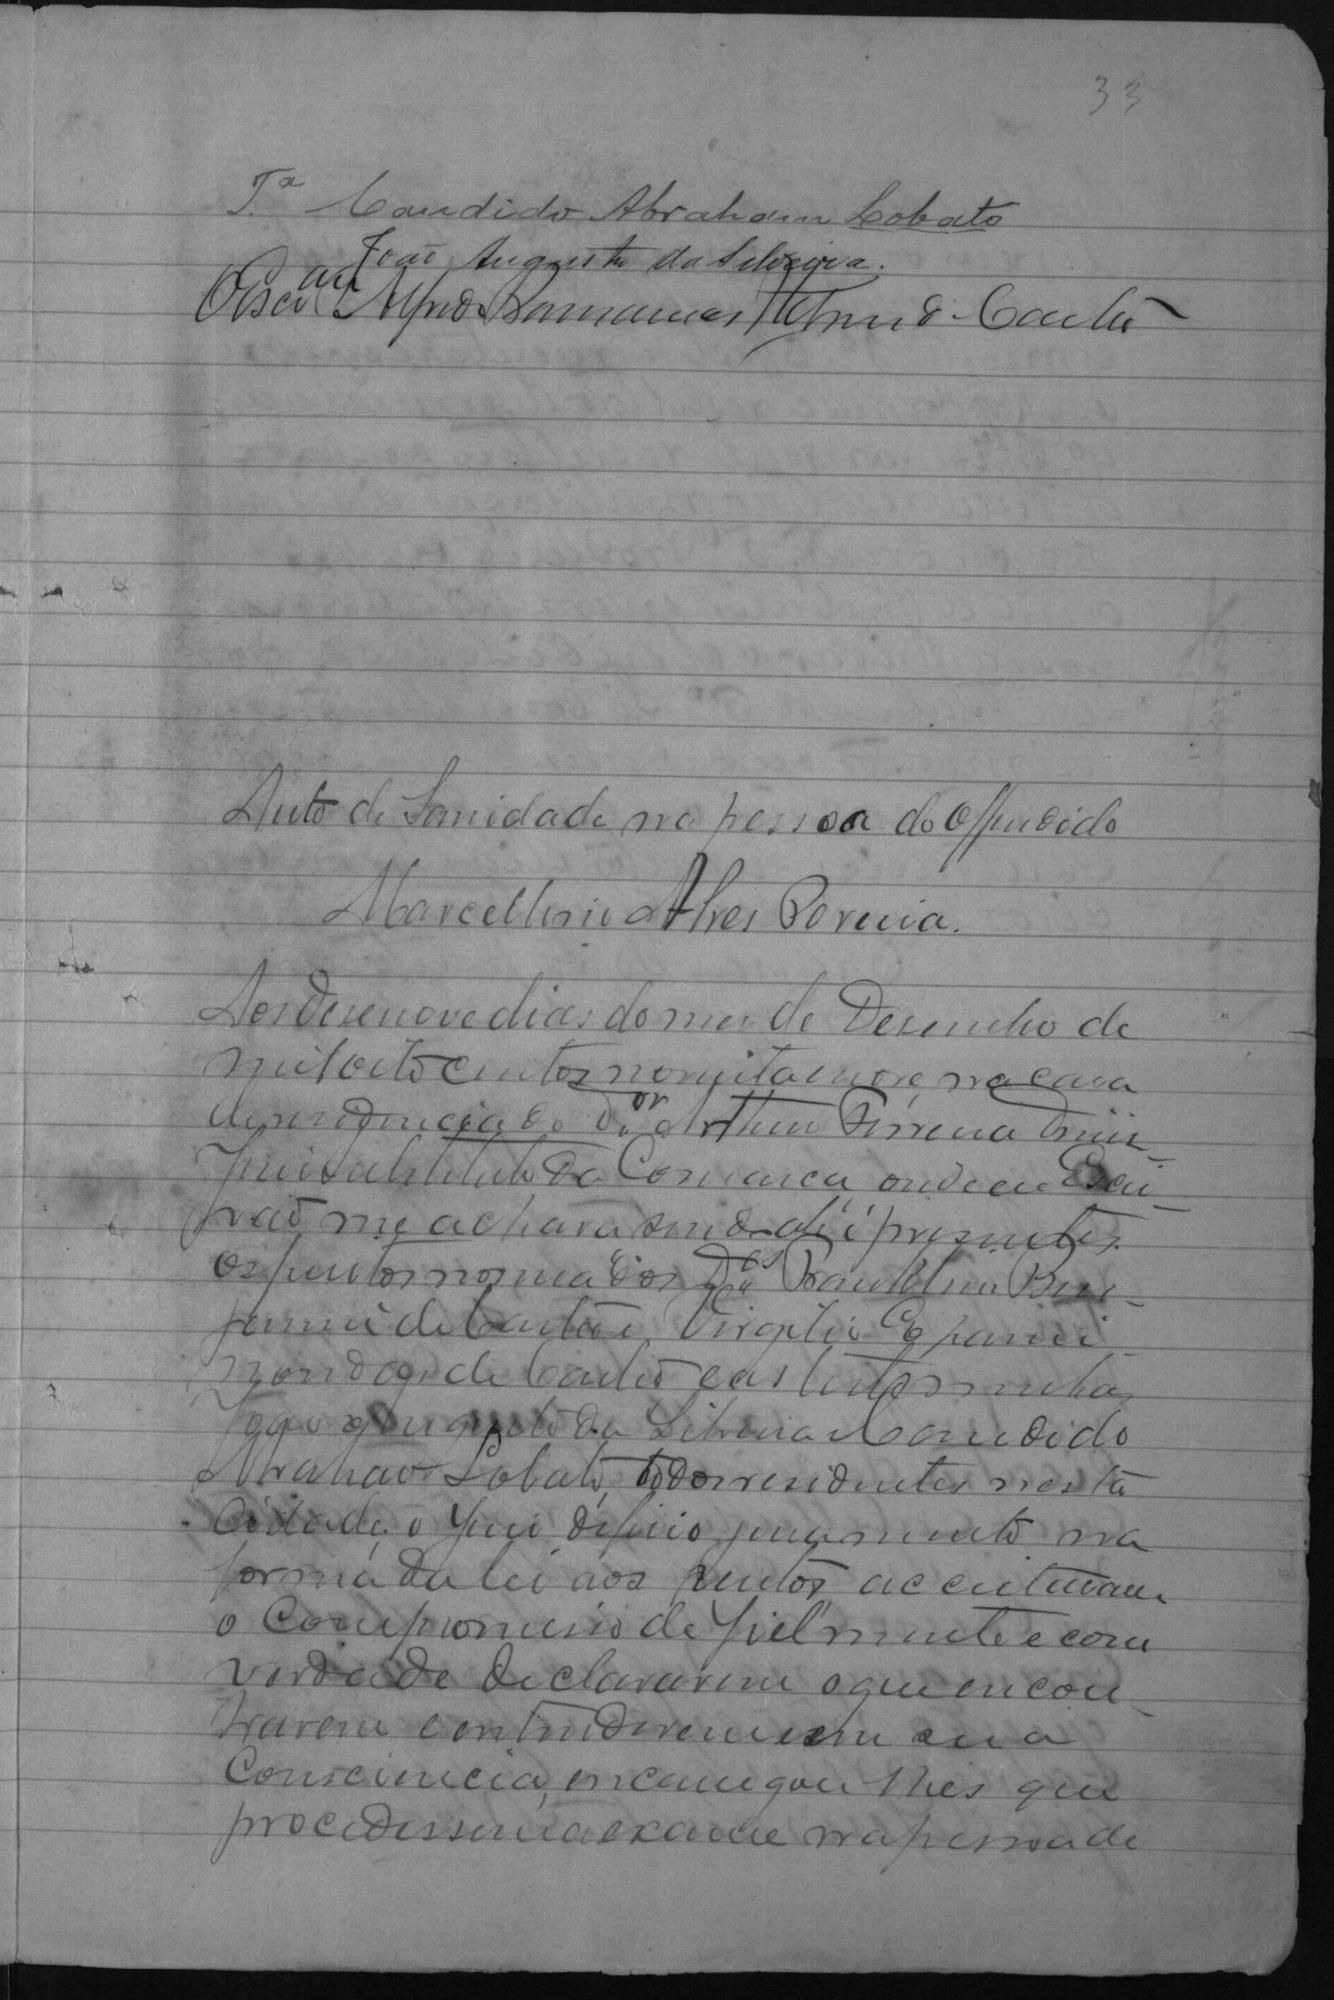 33
T.ª Candido Abraham Lobato
João Augusto da Silveira.
Oscar Alfredo de Castro
Auto de Sanidade na pessoa do Offendido
Marcellino Alves Pereira.
Aos desenove dias do mes de Desembro de
mil oito centos noventa e nove, na casa
de residencia do Dor Arthur
Juis substituto da Comarca, onde eu Escri-
vão me achava sendo ahi presentes
os peritos nomeados Drs Benja-
mim de Castro e Virgilio Epami-
nondas de Castro e as testemunhas
João Augusto da Silveira e Candido
Abrahão Lobato, todos residentes nesta
Cidade, o Juis deferio juramento na
forma da lei aos peritos, acceitaram
o Compromisso de fielmente e com
verdade declararem o que encon-
trarem e entenderem em sua
Consciencia, encarregou lhes que
procedessem a exame na pessoa de